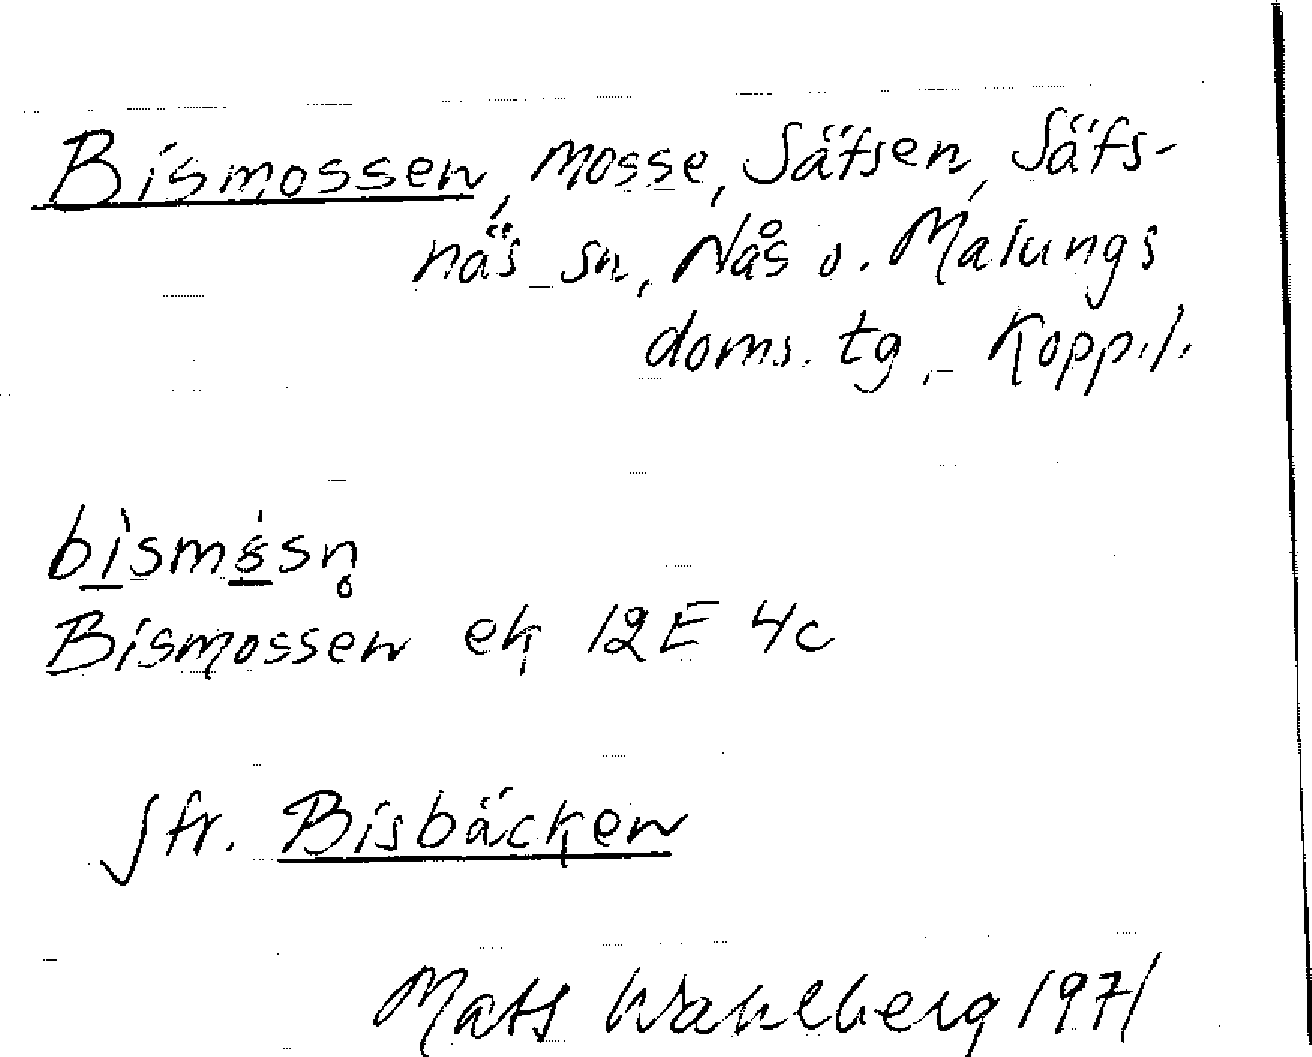 Bismossen, mosse, Säfsen, Säfs-
näs sn, Nås o. Malungs
doms. tg, Kopp.l.
Bismossen ek 12E 4c
Jfr. Bisbäcken
Mats Wahlberg 1971